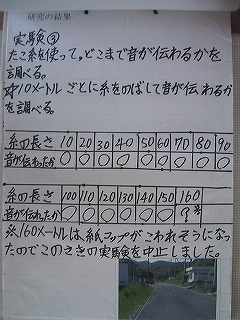 研究の結果
実験③
たこ糸を使って。どこまで音が伝わるかを
調べる。
☆10メートルごとに糸をのばして音が伝わるか
を調べる。
糸の長さ 10 20 30 40 50 60 70 80 90
音が伝わったか ○ ○ ○ ○ ○ ○ ○ ○ ○
糸の長さ 100 110 120 130 140 150 160
音が伝われたか ○ ○ ○ ○ ○ ○
※160メートルは、紙コップがこわれそうになっ
たのでこのさきの実験を中止しました。